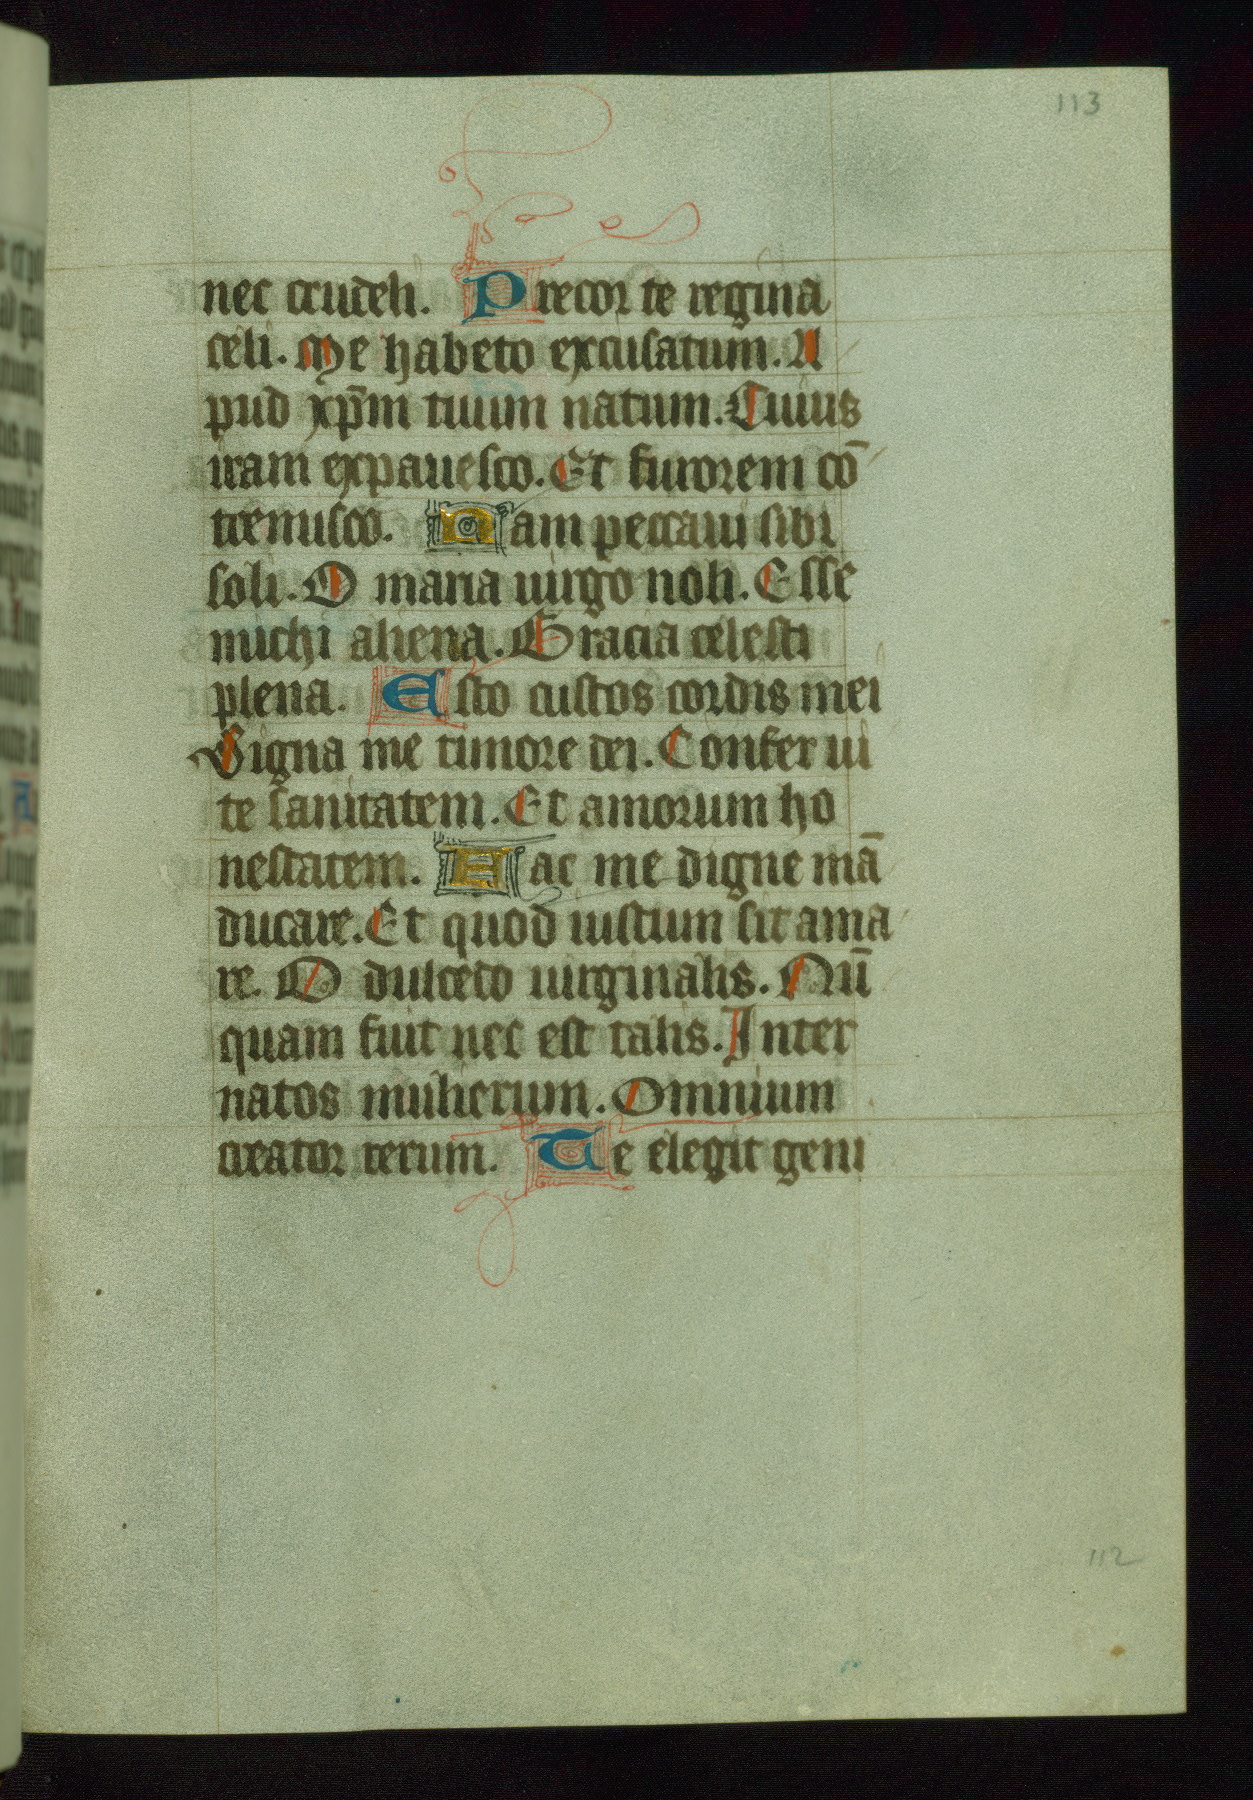 113
nec crudeli. Precor te regina
celi. Me habeto excusatum. A
pud xp̄m tuum natum. Cuius
iram expauesco. Et furorem cō
tremisco. Nam peccaui sibi
soli. O maria uirgo noli. Esse
michi aliena. Gracia celesti
plena. Esto custos cordis mei
Signa me timore dei. Confer ui
te sanitatem. Et amorum ho
nestatem. Hac me digne mā
ducare. Et quod iustum sit ama
re. O dulcedo uirginalis. Nū
quam fuit nec est talis. Inter
natos mulierum. Omnium
creator rerum. Te elegit geni
112